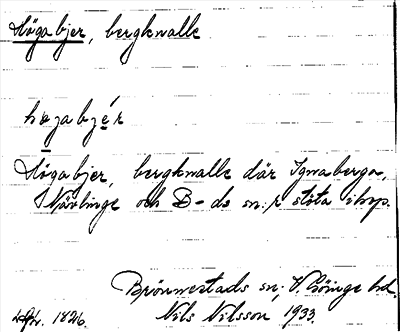 Höga bjer, bergknalle
högabjér
Höga bjer, bergknalle där Ignaberga,
Nävlinge och B-ds sn:r stöta ihop.
Brönnestads sn, V. Göinge hd.
Nils Nilsson 1933
1826.